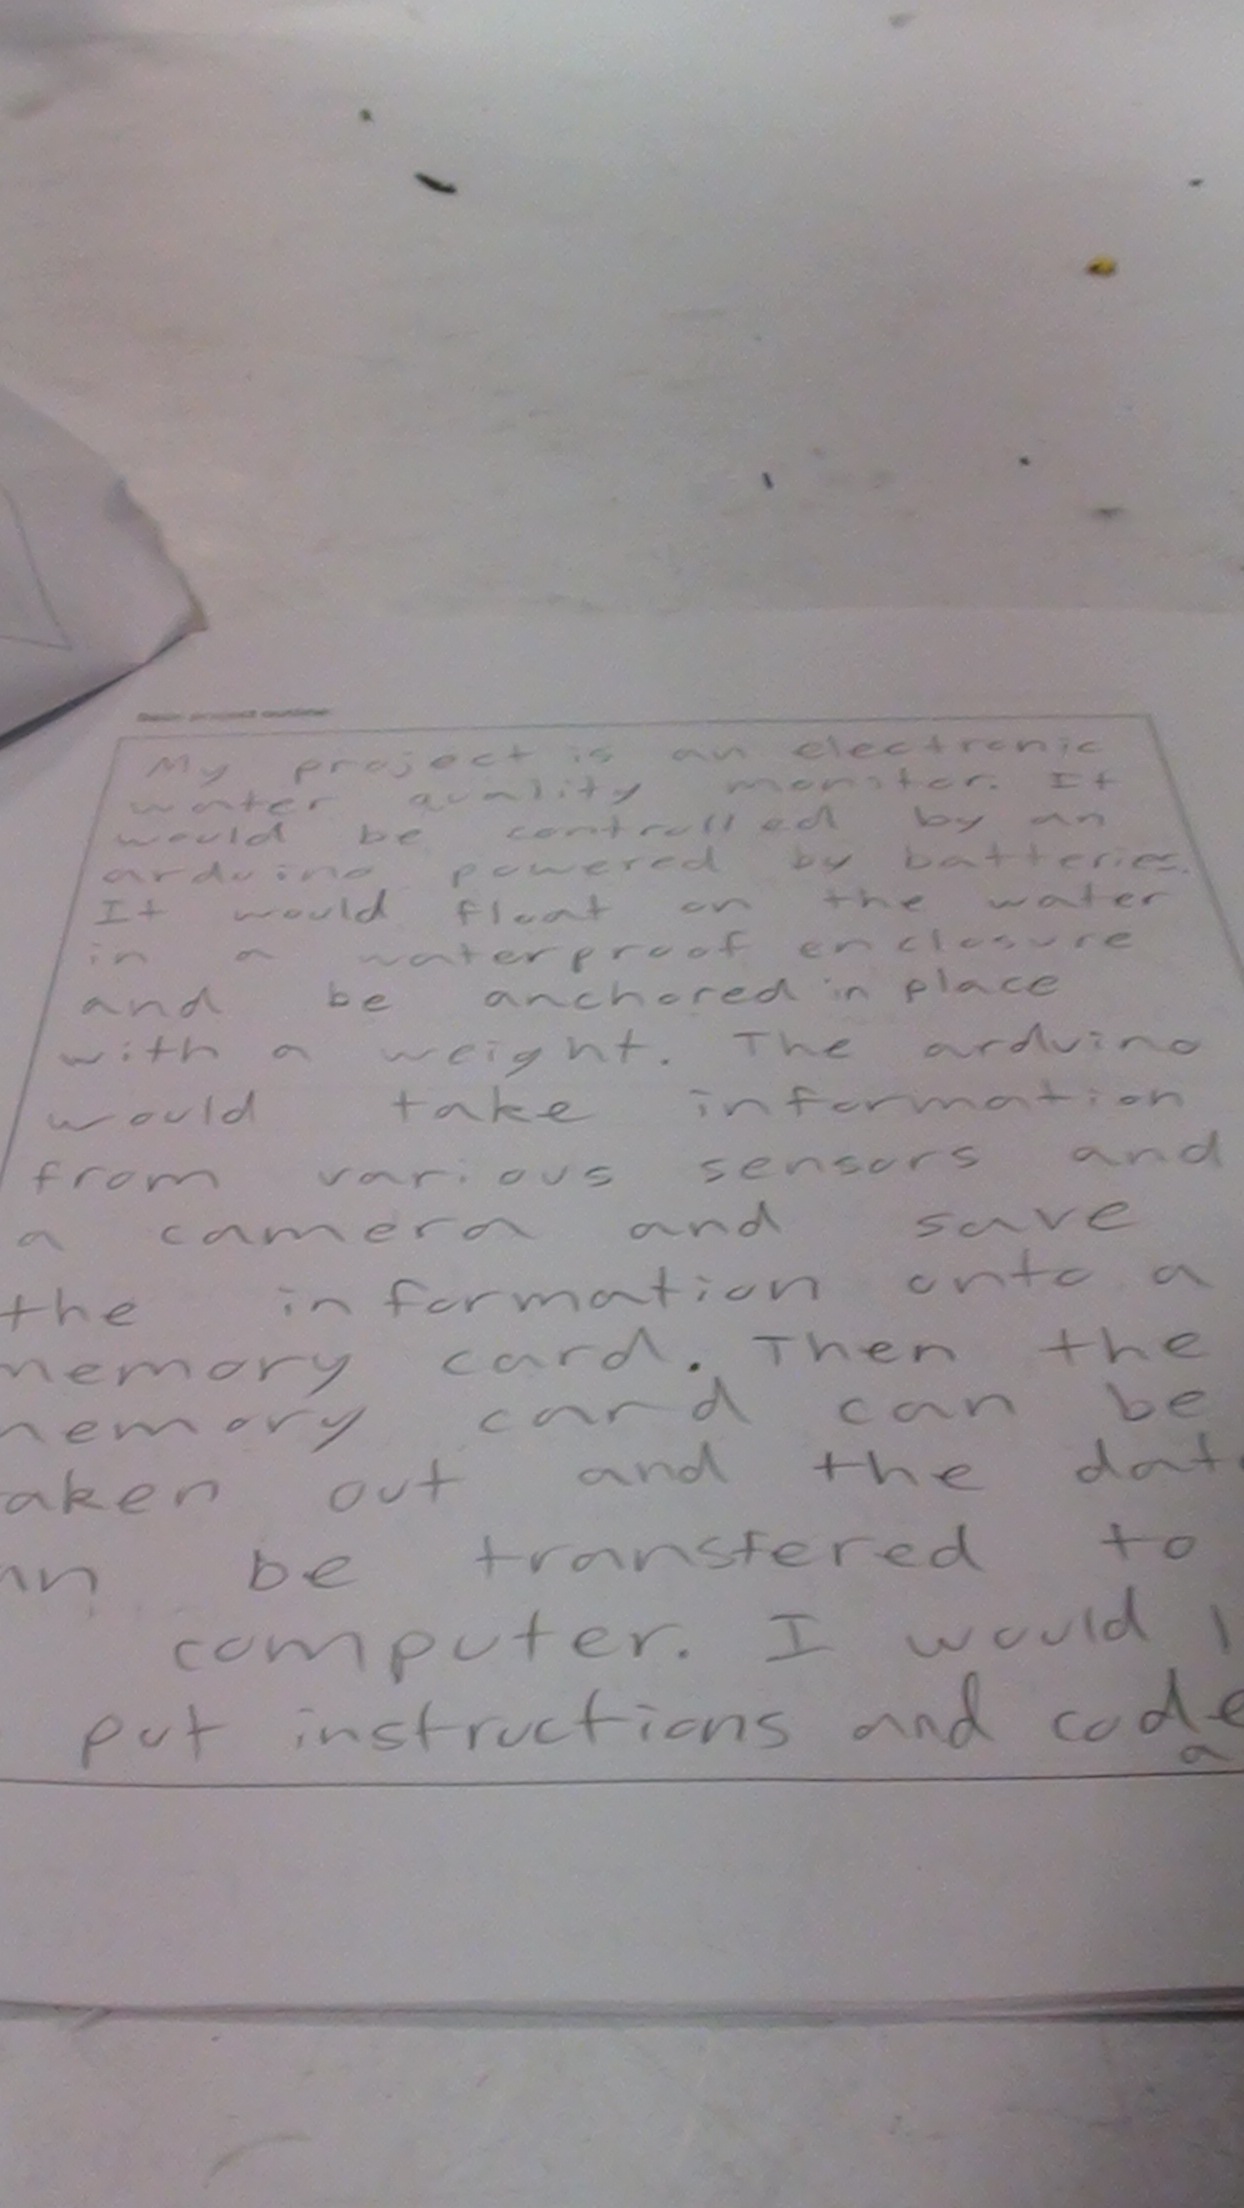 Basic project outline
My project is an electronic
water quality monitor. It
would be controlled by an
arduino powered by batteries.
It would float on the water
in a waterproof enclosure
and be anchored in place
with a weight. The arduino
would take information
from various sensors and
a camera and save
the information onto a
memory card. Then the
memory card can be
taken out and the data
can be transfered to
computer. I would
put instructions and code
a